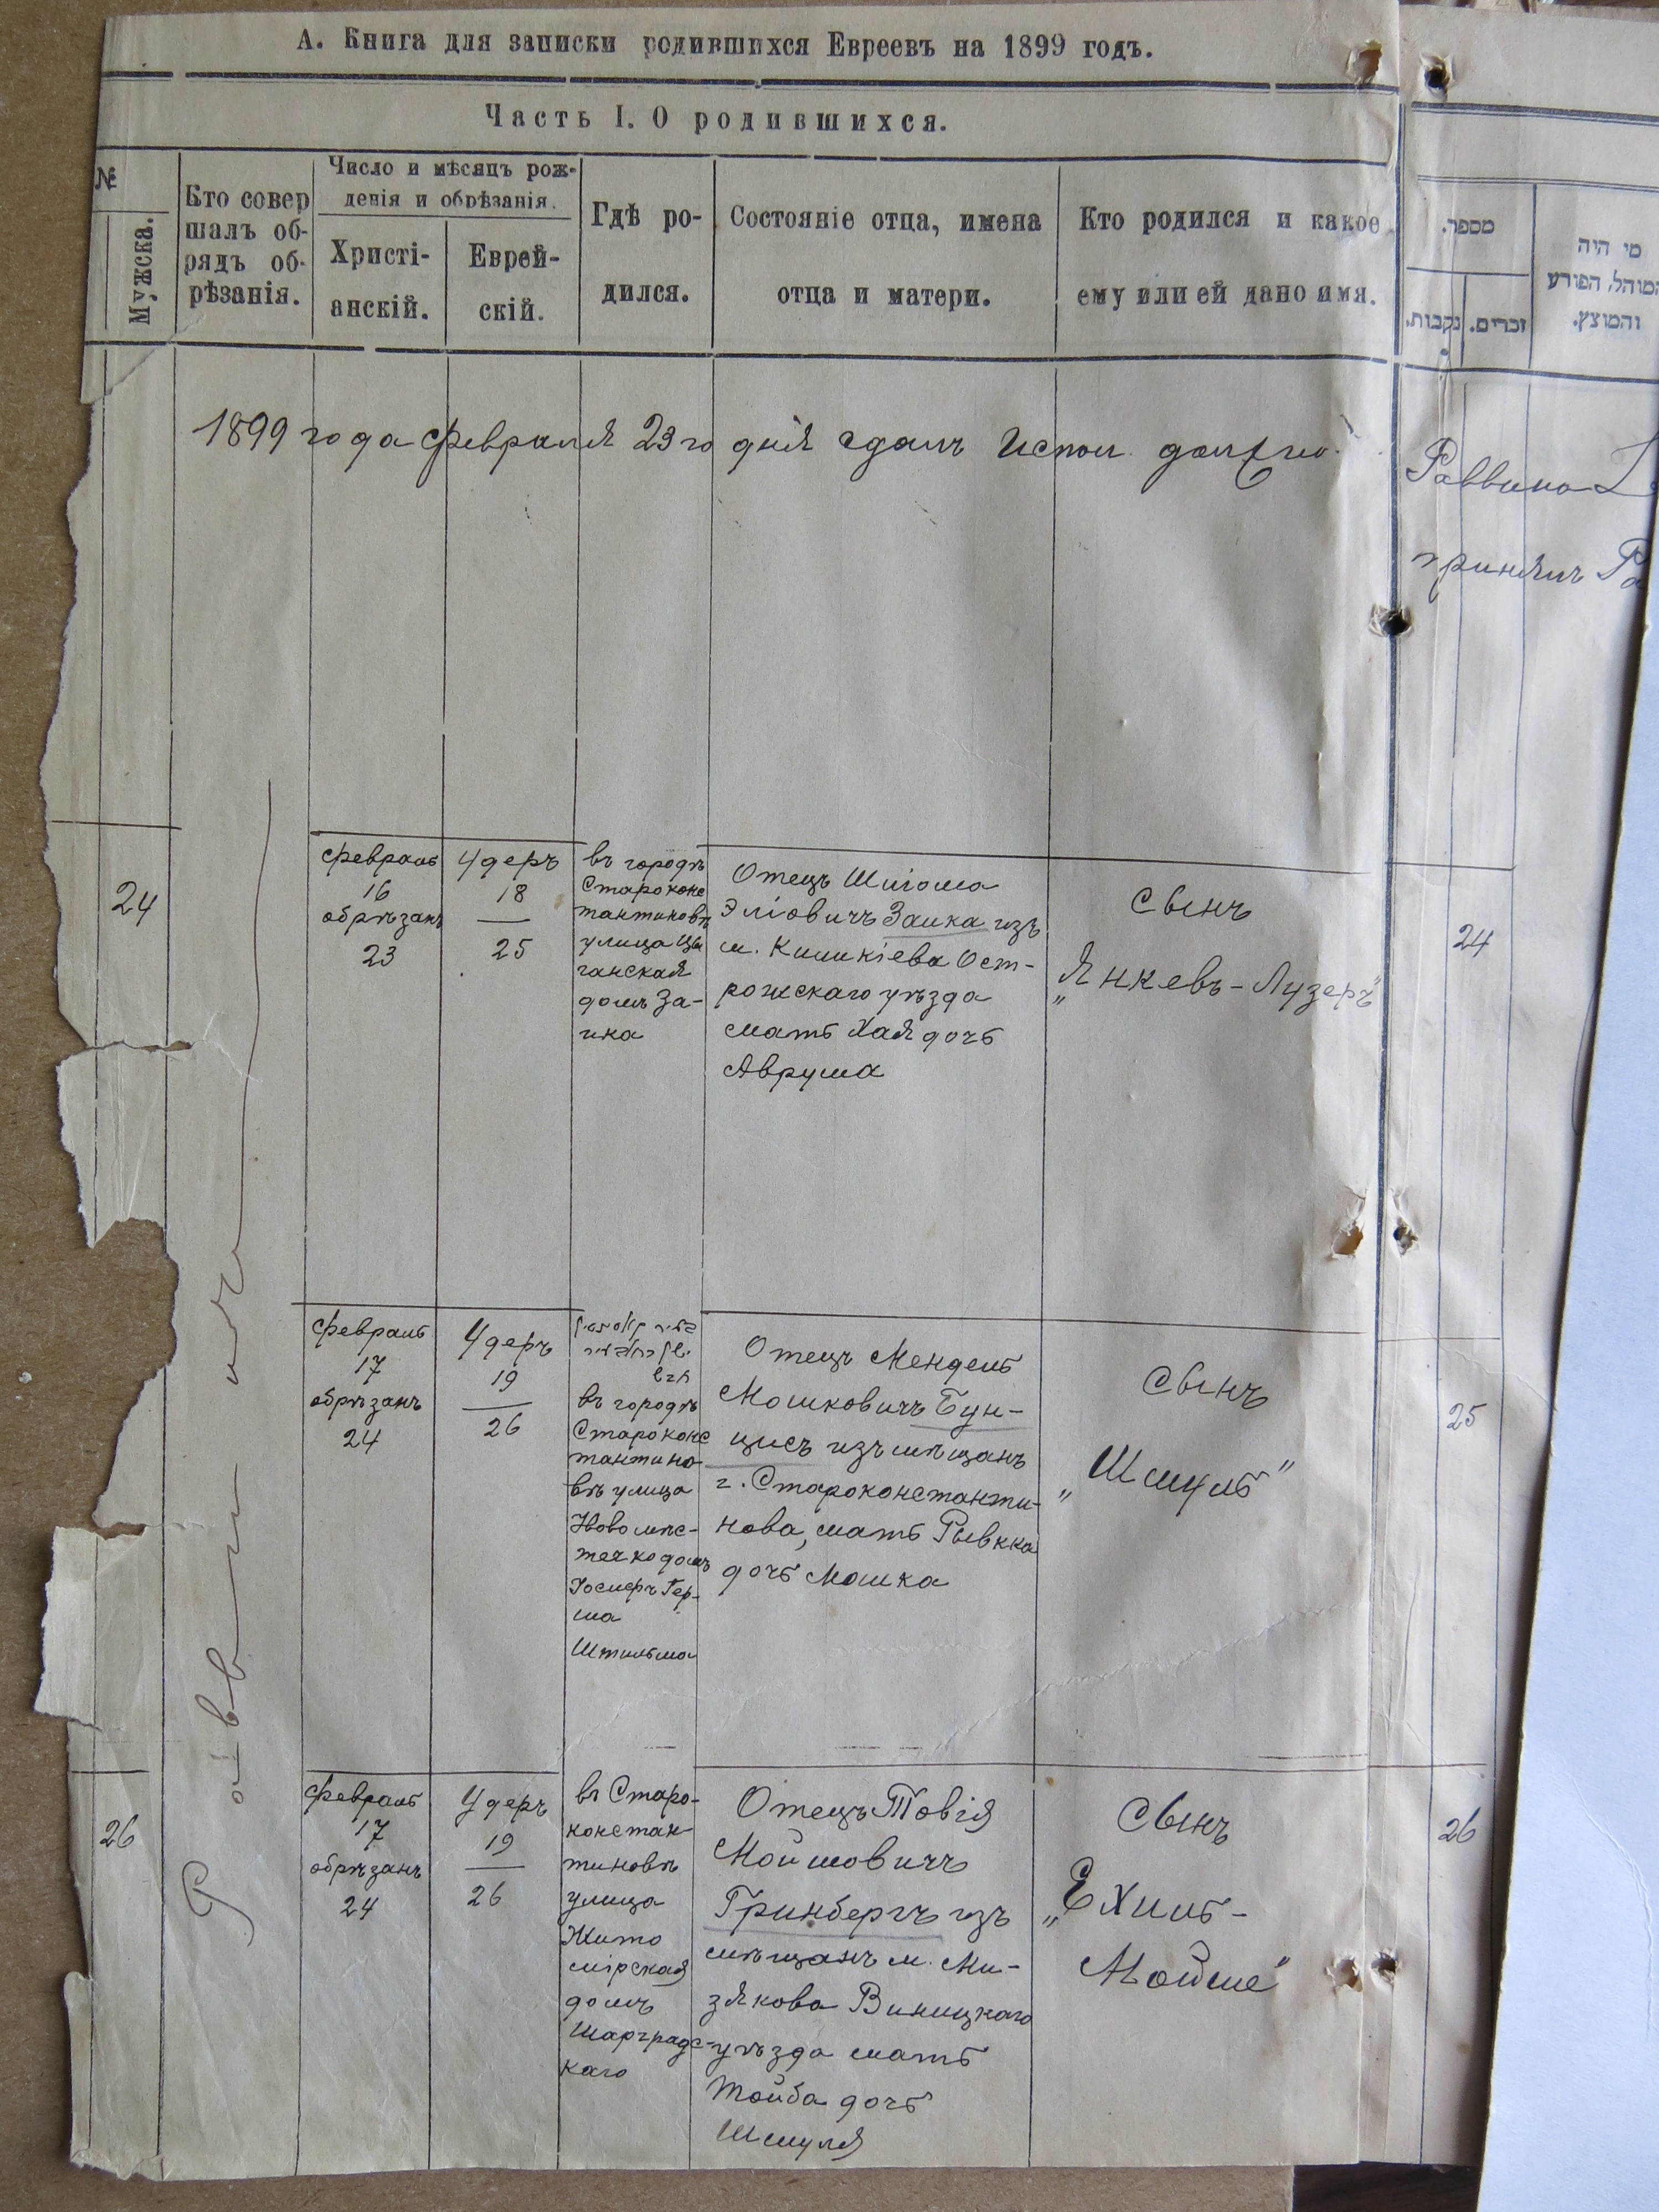 А. Книга для записки родившихся Евреевъ на 1899 годъ.
Часть I. О родившихся.
№
Мужска.
Кто совер
шалъ об-
рядъ об-
рѣзанія.
Число и мѣсяцъ рож-
денія и обрѣзанія.
Христі-
анскій.
Еврей-
скій.
Гдѣ ро-
дился.
Состояніе отца, имена
отца и матери.
Кто родился и какое
ему или ей дано имя.
מספר.
נקבות.
זכרים.
מי היה
המוהל, הפורע
והמוצץ.
1899 года февраля 23го дня сдалъ Испол. должно.
Раввина
принялъ Ра
Раввинъ
24
февраль
16
обрѣзанъ
23
Удеръ
18
25
въ городѣ
Староконс
тантиновѣ
улица Цы
ганская
домъ За-
ика
Отецъ Шліома
Эліовичъ Заика изъ
м. Киликіева Ост-
рожскаго уѣзда
мать Хая дочь
Аврума
сынъ
„Янкевъ-Лузеръ"
24
февраль
17
обрѣзанъ
24
Удеръ
19
26
въ городѣ
Староконс
тантино-
вѣ улица
Новомѣс-
течко домъ
Гер-
ша
Отецъ Мендель
Мошковичъ Бун-
цисъ изъ мѣщанъ
г. Староконстанти-
нова, мать Рывкка
дочь Мошка
сынъ
„Шмуль"
25
26
февраль
17
обрѣзанъ
24
Удеръ
19
26
въ Старо-
констан-
тиновѣ
улица
Жито
мірская
домъ
Шаргродс-
каго
Отецъ Товія
Мойшовичъ
Гринбергъ изъ
мѣщанъ м. Ми-
зякова Виницкаго
уѣзда мать
Тойба дочь
Шмуля
сынъ
„Ехиль-
Мойше"
26